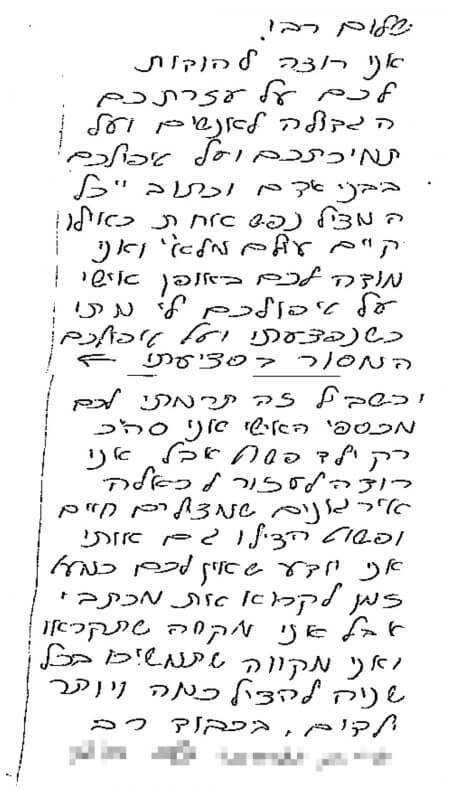 שלום רבי.
אני רוצה להודות
לכם על עזרתכם
הגדולה לאנשים ועל
תמיכתכם ועל טיפולכם
בבני אדם וכתוב "כל
המציל נפש אחת כאילו
קיים עולם מלא" ואני
מודה לכם באופן אישי
על טיפולכם לי מתי
כשנפצעתי ועל טיפולכם
המסור בפציעתי ←
וכשביל זה תרמתי לכם
מכספי האישי אני סה"כ
רק ילד פשוט אבל אני
רוצה לעזור לכאלה
אירגונים שמצילים חיים
ופשוט הצילו גם אותי
אני יודע שאין לכם כמעט
זמן לקרוא את מכתבי
אבל אני מקחה שתקראו
ואני מקווה שתמשיכו בכל
שניה להציל כמה ויותר
ילדים, בכבוד רב